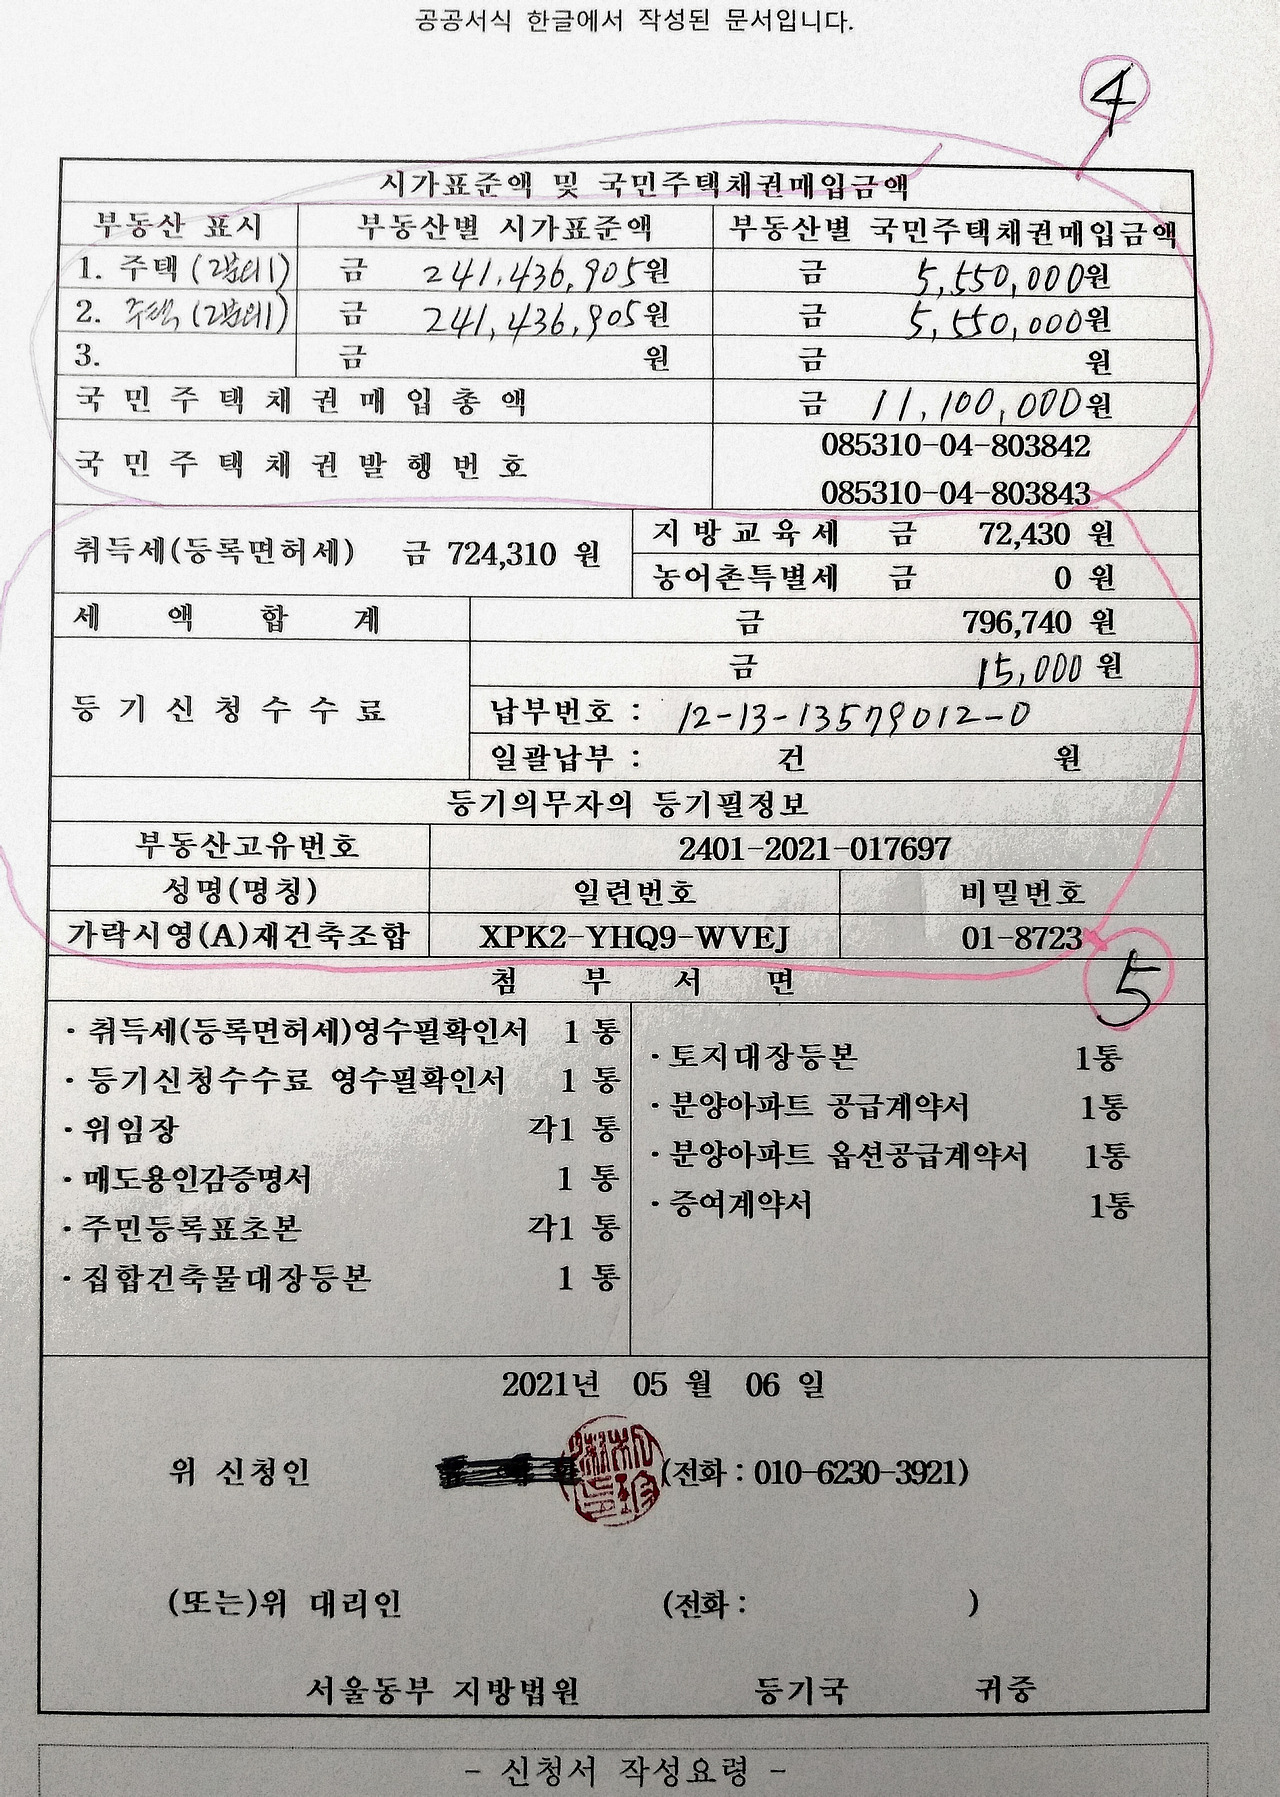 공공서식 한글에서 작성된 문서입니다.
4
시가표준액 및 국민주택채권매입금액
부동산 표시 부동산별 시가표준액 부동산별 국민주택채권매입금액
1. 주택 (2분의1) 금 241,436,905원 금 5,550,000원
2. 주택 (2분의1) 금 241,436,905원 금 5,550,000원
3. 금 원 금 원
국 민 주 택 채 권 매 입 총 액 금 11,100,000원
국 민 주 택 채 권 발 행 번 호 085310-04-803842
085310-04-803843
취득세(등록면허세) 금 724,310 원 지 방 교 육 세 금 72,430 원
농어촌특별세 금 0 원
세 액 합 계 금 796,740 원
등 기 신 청 수 수 료 금 15,000 원
납부번호 : 12-13-13579012-0
일괄납부 : 건 원
등기의무자의 등기필정보
부동산고유번호 2401-2021-017697
성명(명칭) 일련번호 비밀번호
가락시영(A)재건축조합 XPK2-YHQ9-WVEJ 01-8723
5
첨 부 서 면
· 취득세(등록면허세)영수필확인서 1 통
· 등기신청수수료 영수필확인서 1 통
· 위임장 각1 통
· 매도용인감증명서 1 통
· 주민등록표초본 각1 통
· 집합건축물대장등본 1 통
· 토지대장등본 1통
· 분양아파트 공급계약서 1통
· 분양아파트 옵션공급계약서 1통
· 증여계약서 1통
2021년 05 월 06 일
위 신청인 (전화 : 010-6230-3921)
(또는)위 대리인 (전화 : )
서울동부 지방법원 등기국 귀중
- 신청서 작성요령 -